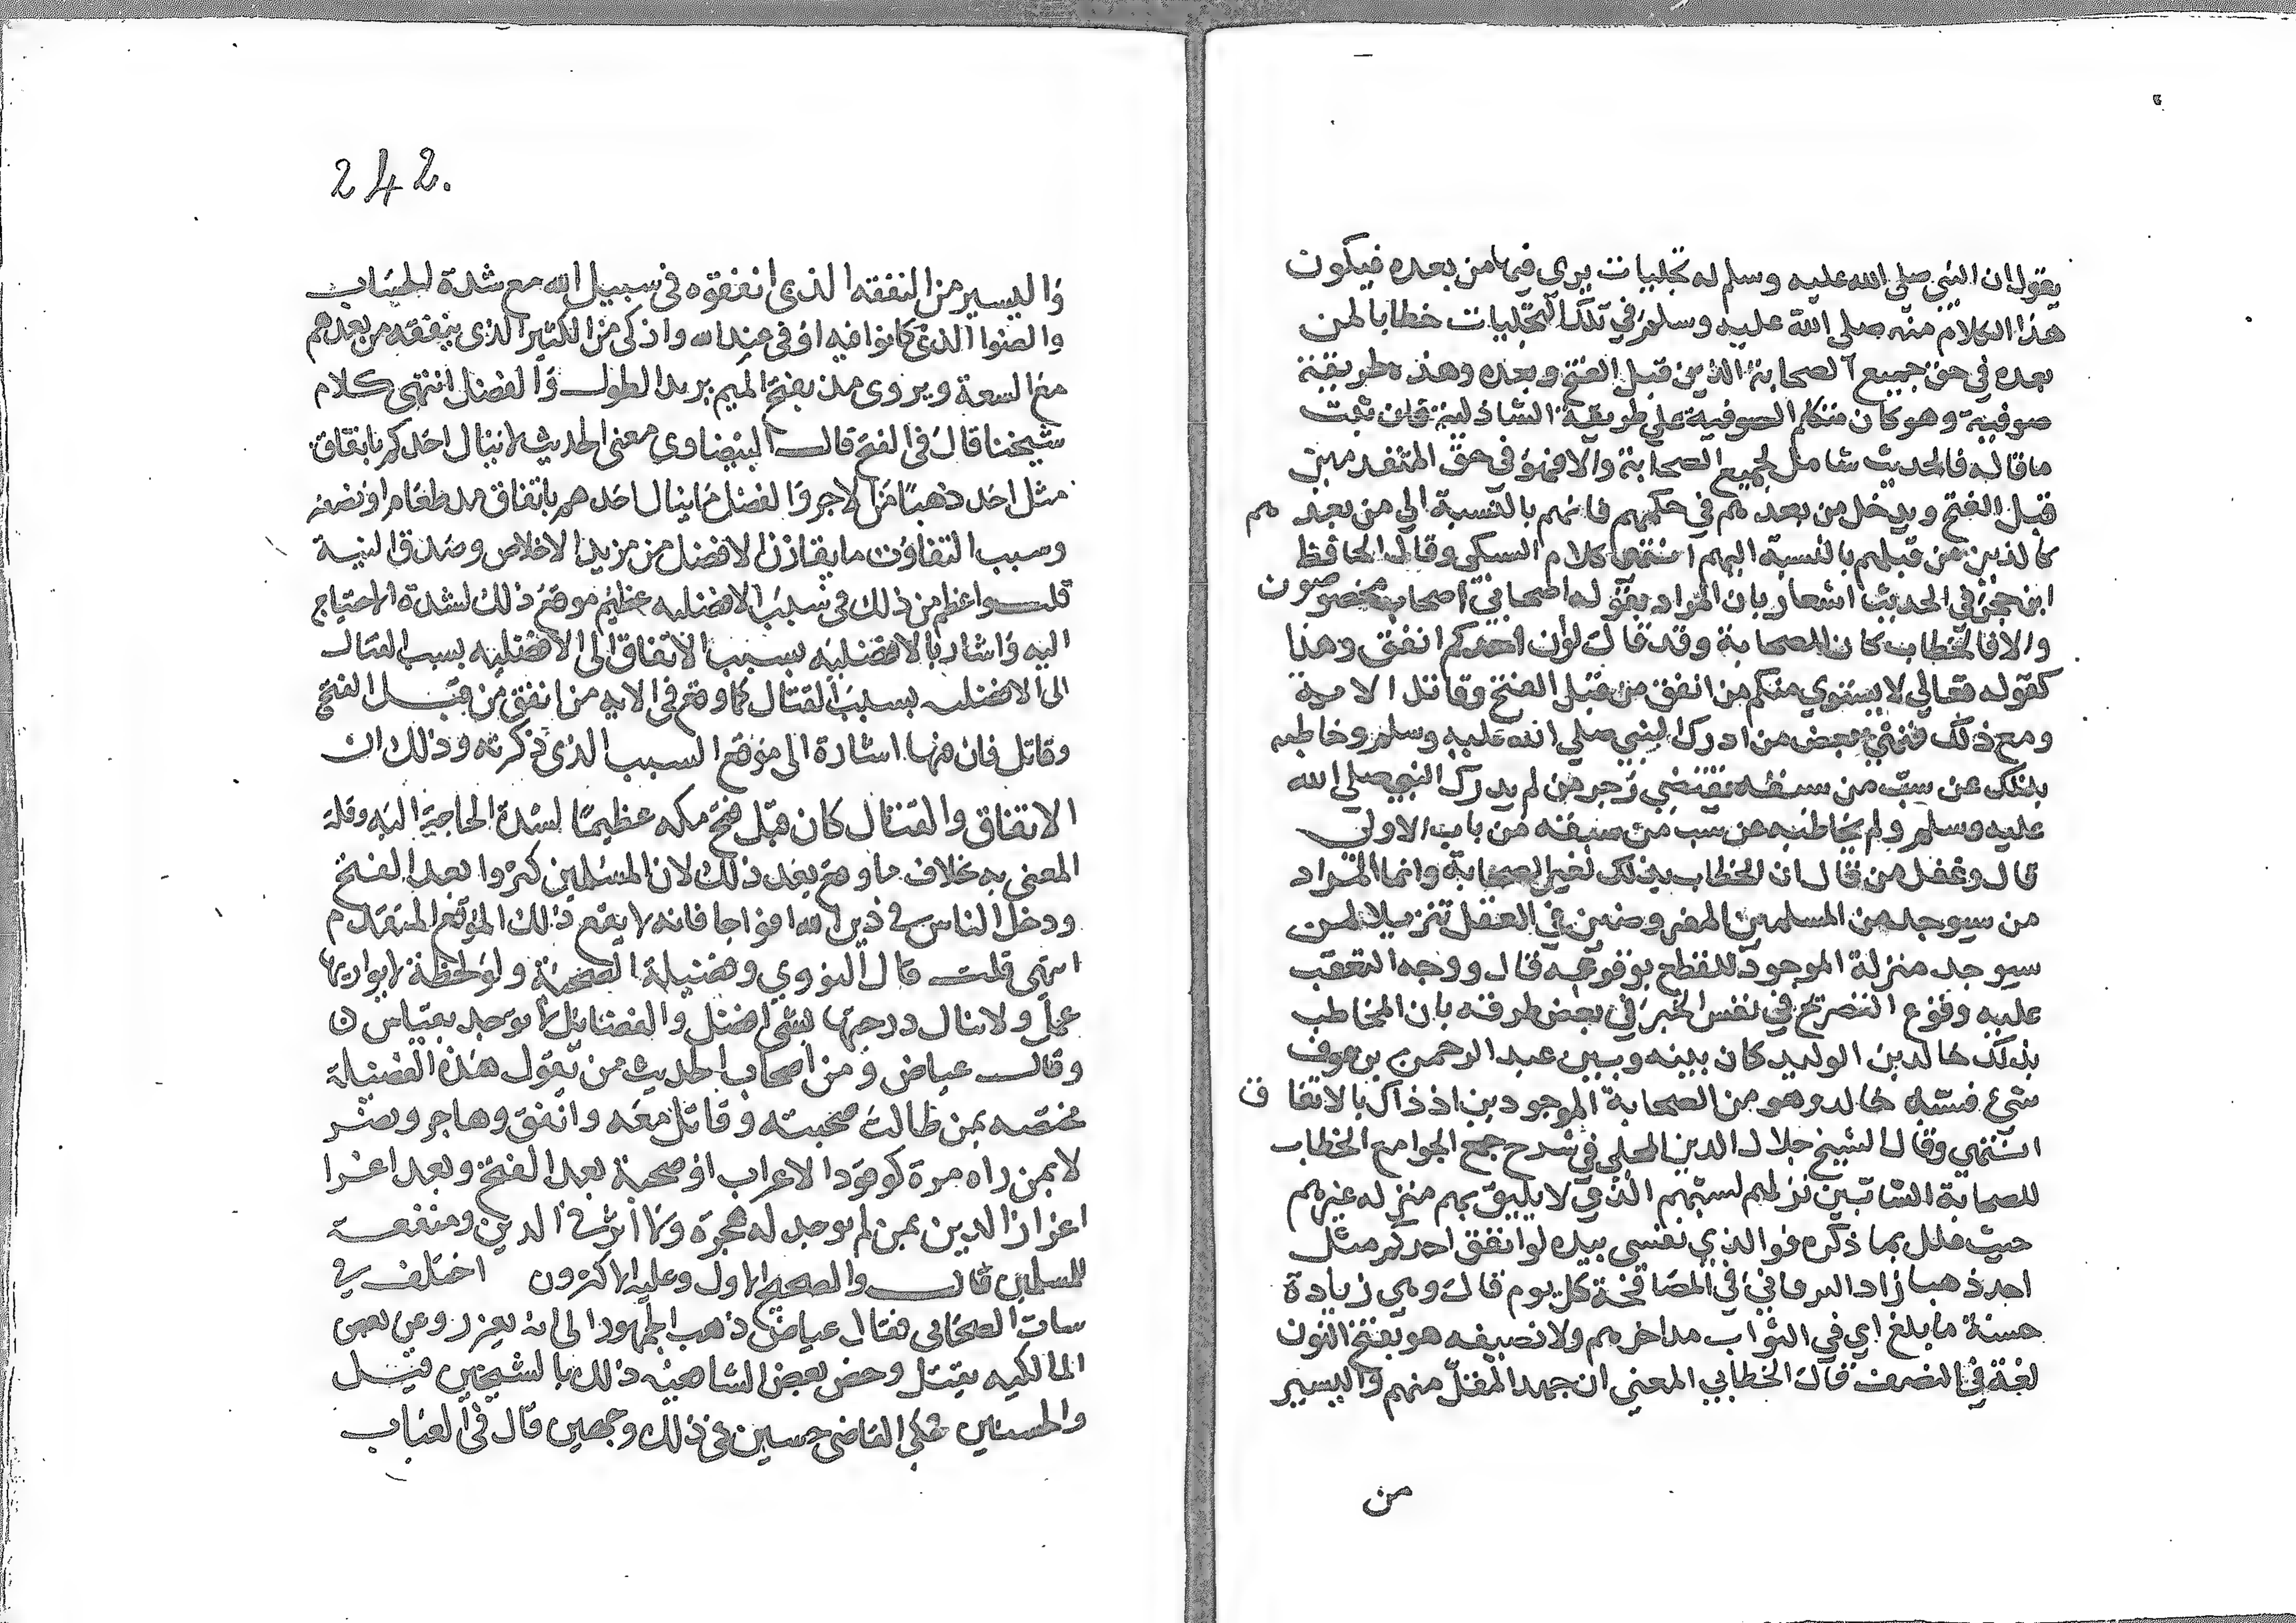 يقول ان النبي صلى الله عليه وسلم له تجليات يري فيها من بعده فيكون
هذا الكلام منه صلى الله عليه وسلم في تلك التجليات خطابا لمن
بعده في حق جميع الصحابة الذين قبل الفتح وبعده وهذه طريقة
صوفية وهو كان متكلم الصوفية علي طريقة الشاذلية فان ثبت
ما قاله فالحديث شامل لجميع الصحابة والا فهو في حق المتقدمين
قبل الفتح ويدخل من بعدهم في حكمهم فانهم بالنسبة الي من بعد هم
كالذين من قبلهم بالنسبة اليهم انتهى كلام السبكى وقال الحافظ
ابن حجر في الحديث اشعار بان المراد بقوله اصحابي اصحاب مخصوصون
والا فالخطاب كان للصحابة وقد قال لو ان احدكم انفق وهذا
كقوله تعالي لا يستوي منكم من انفق من قبل الفتح وقاتل الاية
ومع ذلك فنهي بعض من ادرك النبي صلي الله عليه وسلم وخاطبه
بذلك عن سب من سبقه يقتضي زجر من لم يدرك النبي صلي الله
عليه وسلم ولم يخاطبه عن سب من سبقه من باب الاولى
قال وغفل من قال ان الخطاب بذلك لغير الصحابة وانما المراد
من سيوجد من المسلمين المفروضين في العقل تنزيلا لمن
سيوجد منزلة الموجود للقطع بوقوعه قال ووجه التعقب
عليه وقوع التصريح في نفس الخبر في بعض طرقه بان المخاطب
بذلك خالد بن الوليد كان بينه وبين عبد الرحمن بن عوف
شيء فسبه خالد وهو من الصحابة الموجودين اذ ذاك بالاتفا ق
انتهى وقال الشيخ جلال الدين المحلي في شرح جمع الجوامع الخطاب
للصحابة السابين نزلهم لسبهم الذي لا يليق بهم منزله غيرهم
حيث علل بما ذكره فوالذي نفسي بيده لو انفق احدكم مثل
احد ذهبا زاد البرقاني في المصافحة كل يوم قال وهي زيادة
حسنة ما بلغ اي في الثواب مد احدهم ولا نصيفه هو بفتح النون
لغة في النصف قال الخطابي المعني ان جهد المقل منهم واليسير
من
242.
واليسير من النفقه الذي انفقوه فى سبيل الله مع شدة
كانوا فيه اوفى عند الله وازكى من الكثير الذى ينفقه من بعدهم
مع السعة ويروى مد بفتح الميم يريد الطول والفضل انتهى كلام
شيخنا قال فى الفتح قال البيضاوى معنى الحديث لا ينال احدكم بانفاق
مثل احد ذهبا من الاجر والفضل ما ينال احدهم بانفاق مد طعام او نصفه
وسبب التفاوت ما يقارن الافضل من مزيد الاخلاص وصدق النية
قلت واعظم من ذلك فى سبب الافضليه عظيم موقع ذلك لشدة الاحتياج
اليه واشار بالافضليه بسبب الانفاق الى الافضليه بسبب القتال
الى الافضليه بسبب القتال كما وقع فى الايه من انفق من قبل الفتح
وقاتل فان فيها اشارة الى موقع السبب الذى ذكرته وذلك ان
الانفاق والقتال كان قبل فتح مكه عظيما لشدة الحاجة اليه وقلة
المعتنى به بخلاف ما وقع بعد ذلك لان المسلمين كثروا بعد الفتح
ودخل الناس فى دين الله افواجا فانه لا يقع ذلك الموقع المتقدم
انتهى قلت قال النووي وفضيلة الصحبة ولو لحظة لا يوازيها
عمل ولا تنال درجتها بشى افضل والفضايل لا توخذ بقياس
وقال عياض ومن اصحاب الحديث من يقول هذه الفضيلة
مختصه بمن طالت صحبته وقاتل معه وانفق وهاجر ونصر
لا بمن راه مرة كوفود الاعراب او صحبه بعد الفتح وبعد اعزا
اعزاز الدين بمن لم يوجد له هجرة ولا اثر فى الدين ومنفعة
للمسلمين قال والصحيح الاول وعليه الاكثرون اختلف فى
ساب الصحابى فقال عياض ذهب الجمهور الى انه يعزر وعن بعض
المالكيه يقتل وخص بعض الشافعيه ذلك بالشيخين
والحسنين فحكى القاضى حسين فى ذلك وجهين قال فى العباب